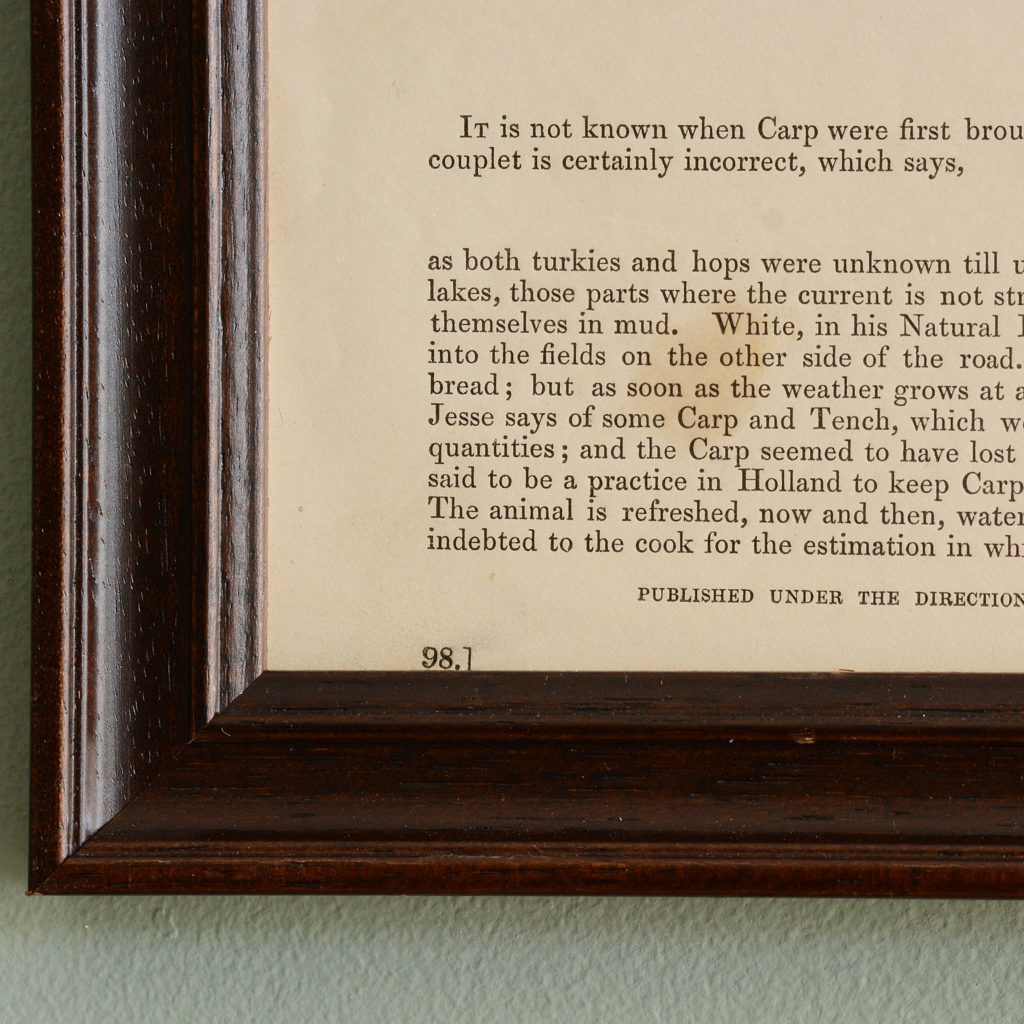 It is not known when Carp were first
couplet is certainly incorrect, which says,
as both turkies and hops were unknown till
lakes, those parts where the current is not
themselves in mud. White, in his Natural
into the fields on the other side of the road.
bread; but as soon as the weather grows at
Jesse says of some Carp and Tench, which
quantities; and the Carp seemed to have lost
said to be a practice in Holland to keep Carp
The animal is refreshed, now and then,
indebted to the cook for the estimation in
PUBLISHED UNDER THE DIRECTION
98.]